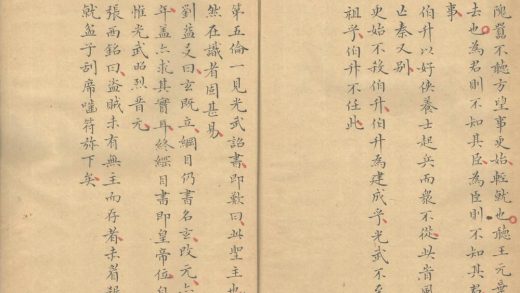 隗囂不聽方望事更始輕就也聽王元
去也為君則不知其臣為臣則不知其君
事
伯升以好俠養士起兵而衆不從此
亾秦又别
更始不殺伯升伯升為建成乎光武不至
祖乎伯升不任此
第五倫一見光武詔書即歎曰此聖主也
然在識者固甚易
劉益友曰玄既立綱目仍書名玄改元
年盖亦求其實耳終綱目書即皇帝位自
惟光武昭烈晋元
張西銘曰盗賊未有無主而存者赤
就盆子刮席嚙符弥下矣